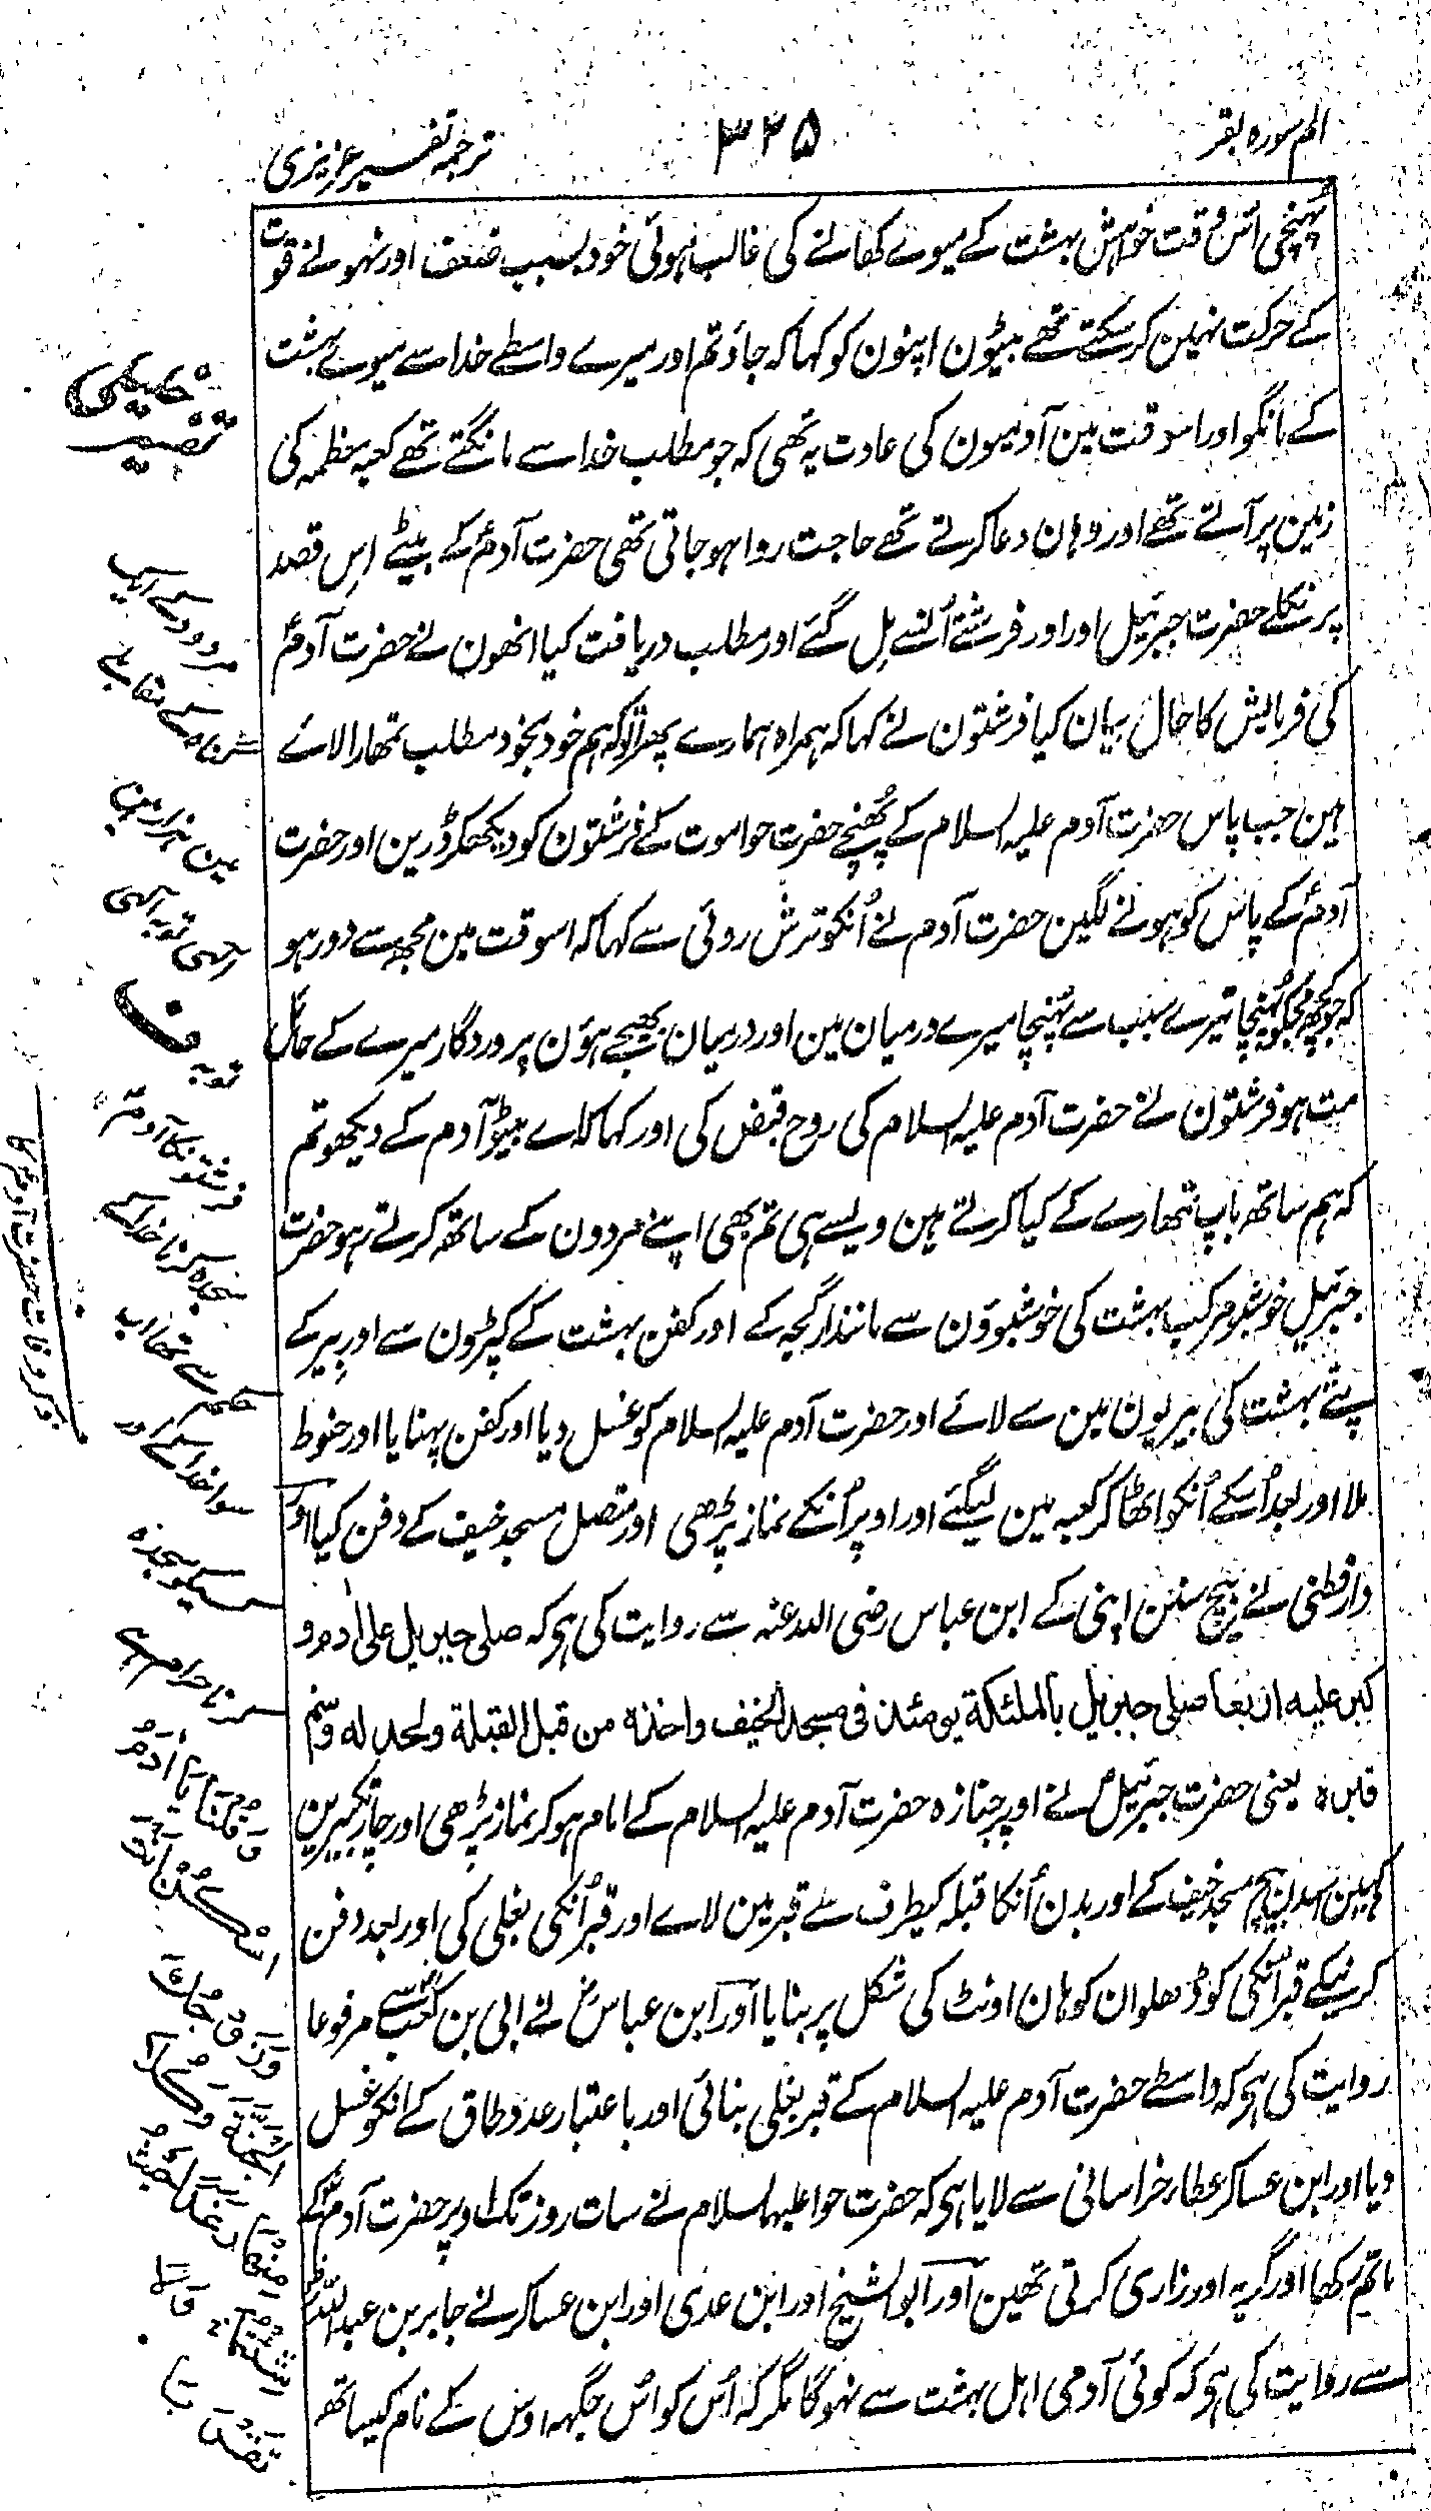 الم سورہ بقر
۳۲۵
ترجمہ تفسیر عزیزی
پہنچی اُس وقت خواہش بہشت کے میوے کھانے کی غالب ہوئی خود بسبب ضعف اور نہونے قوت
کے حرکت نہین کر سکتے تھے بیٹون اپنون کو کہا کہ جاؤ تم اور میرے واسطے خدا سے میوے بہشت
کے مانگو اور اسوقت مین آدمیون کی عادت یہ تھی کہ جو مطلب خدا سے مانگتے تھے کعبہ معظمہ کی
زمین پر آتے تھے اور وہان دعا کرتے تھے حاجت روا ہو جاتی تھی حضرت آدمؑ کے بیٹے اِس قصد
پر نکلے حضرت جبرئیل اور اور فرشتے اُنسے مِل گئے اور مطلب دریافت کیا انھون نے حضرت آدمؑ
کی فرمایش کا حال بیان کیا فرشتون نے کہا کہ ہمراہ ہمارے پھر آؤ کہ ہم خود بخود مطلب تمھارا لائے
ہین جب پاس حضرت آدم علیہ السلام کے پُھنچے حضرت حوا موت کے فرشتون کو دیکھکر ڈرین اور حضرت
آدمؑ کے پاس کو ہونے لگین حضرت آدم نے اُنکو ترش روئی سے کہا کہ اسوقت مین مجھ سے دور ہو
کہ جو کچھ مجکو پُہنچا تیرے سبب سے پُہنچا میرے درمیان مین اور درمیان بھیجے ہوؤن پروردگار میرے کے حائل
مت ہو فرشتون نے حضرت آدم علیہ السلام کی روح قبض کی اور کہا کہ اے بیٹو آدم کے دیکھو تم
کہ ہم ساتھ باپ تمھارے کے کیا کرتے ہین ویسے ہی تم بھی اپنے مردون کے ساتھ کرتے رہو حضرت
جبرئیل خوشبو مرکب بہشت کی خوشبوؤن سے مانند ارگجہ کے اور کفن بہشت کے کپڑون سے اور بیر کے
پتے بہشت کی بیریون مین سے لائے اور حضرت آدم علیہ السلام کو غسل دیا اور کفن پہنایا اور حنوط
ملا اور بعد اُسکے اُنکو اٹھا کر کعبہ مین لیگئے اور اوپر اُنکے نماز پڑھی اور متصل مسجد خیف کے دفن کیا اور
دارقطنی نے بیچ سنن اپنی کے ابن عباس رضی اللہ عنہ سے روایت کی ہی کہ صلی جبریل علی اٰدم و
کبر علیہ اربعا صلی جبریل بالملئکۃ یومئذ فی مسجد الخیف واخذہ من قبل القبلۃ ولحد لہ وسنم
قبرہ یعنی حضرت جبرئیل نے اوپر جنازہ حضرت آدم علیہ السلام کے امام ہو کر نماز پڑھی اور چار تکبیرین
کہین اُسدن بیچ مسجد خیف کے اور بدن اُنکا قبلہ کیطرف سے قبر مین لاے اور قبر اُنکی بغلی کی اور بعد دفن
کرنیکے قبر اُنکی کو ڈھلوان کوہان اونٹ کی شکل پر بنایا اور ابن عباسؓ نے ابی بن کعبؓ سے مرفوعا
روایت کی ہی کہ واسطے حضرت آدم علیہ السلام کے قبر بغلی بنائی اور باعتبار عدد طاق کے انکو غسل
دیا اور ابن عساکر عطار خراسانی سے لایا ہی کہ حضرت حوا علیہا السلام نے سات روز تک اوپر حضرت آدمؑ کے
ماتم رکھا اور گریہ اور زاری کرتی تھین اور ابو الشیخ اور ابن عدی اور ابن عساکر نے جابر بن عبد اللہؓ
سے روایت کی ہی کہ کوئی آدمی اہل بہشت سے نہوگا مگر کہ اُس کو اُس جگہہ اوس کے نام کیساتھ
تفسیر
ف
توبہ
فرشتونکا آدمؑ
سجدہ کرنا خدا کے
حکم سے تھا اب
سوا خدا کے اور
کسیکو سجدہ
کرنا حرام ہے
وَقُلْنَا يَا آدَمُ
اسْكُنْ أَنْتَ
وَزَوْجُكَ
الْجَنَّةَ وَكُلَا
مِنْهَا رَغَدًا حَيْثُ
شِئْتُمَا وَلَا
تَقْرَبَا
ذکر وفات حضرت آدمؑ کا